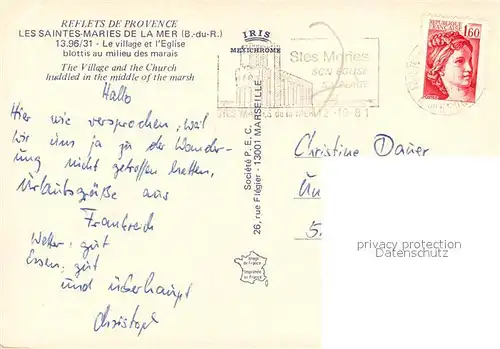 REFLETS DE PROVENCE
LES SAINTES-MARIES DE LA MER (B.-du-R.)
13.96/31 - Le village et l'Eglise
blottis au milieu des marais
The Village and the Church
huddled in the middle of the marsh
Hallo
Hier wie versprochen, weil
wir uns ja zu der Wander-
ung nicht getroffen hatten,
Urlaubsgrüße aus
Frankreich
Wetter: gut
Essen: gut
und überhaupt
Christoph
IRIS
MEXICHROME
Société P.E.C.
26, rue Flégier - 13001 MARSEILLE
Stes Maries
SON EGLISE
12-10-81
REPUBLIQUE FRANCAISE
1,60
Christine Dauer
5.
privacy protection
Datenschutz
Image
de France
Imprimée
en France